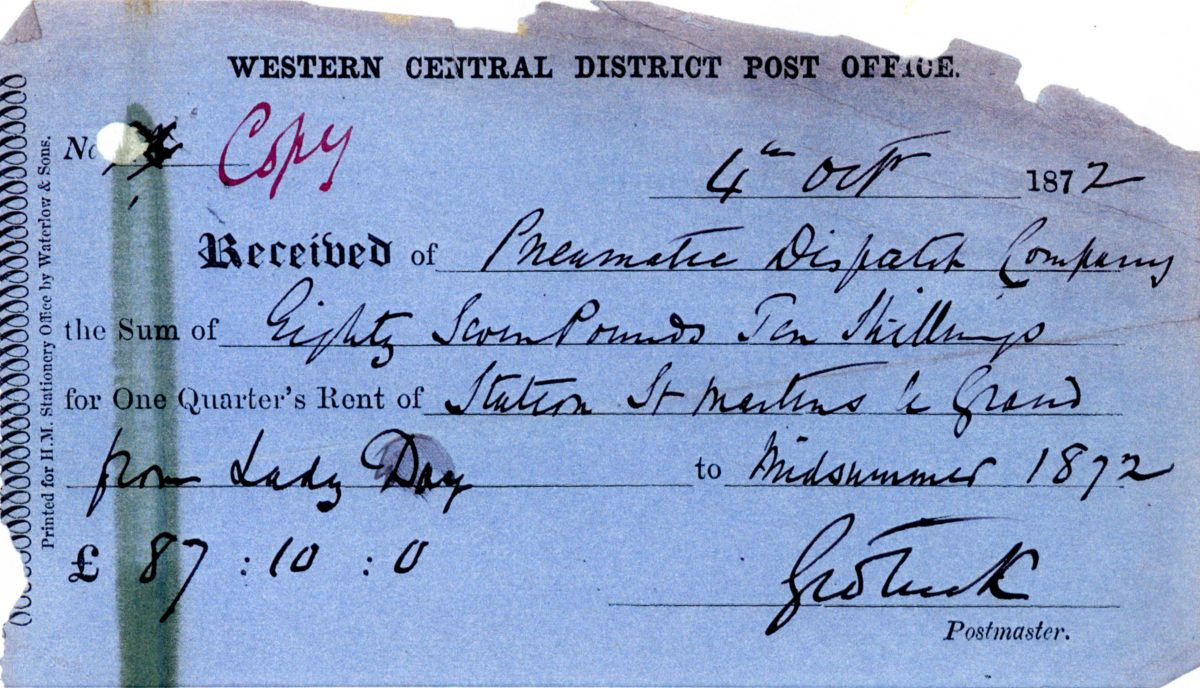 WESTERN CENTRAL DISTRICT POST OFFICE.
No Copy 4th Octr 1872
Received of Pneumatic Dispatch Company
the Sum of Eighty Seven Pounds Ten Shillings
for One Quarter's Rent of Station St Martins le Grand
from Lady Day to Midsummer 1872
£ 87 : 10 : 0
Postmaster.
Printed for H.M. Stationery Office by Waterlow & Sons.